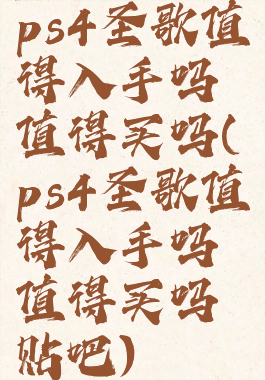 ps4圣歌值
得入手吗
值得买吗(
ps4圣歌值
得入手吗
值得买吗
贴吧)